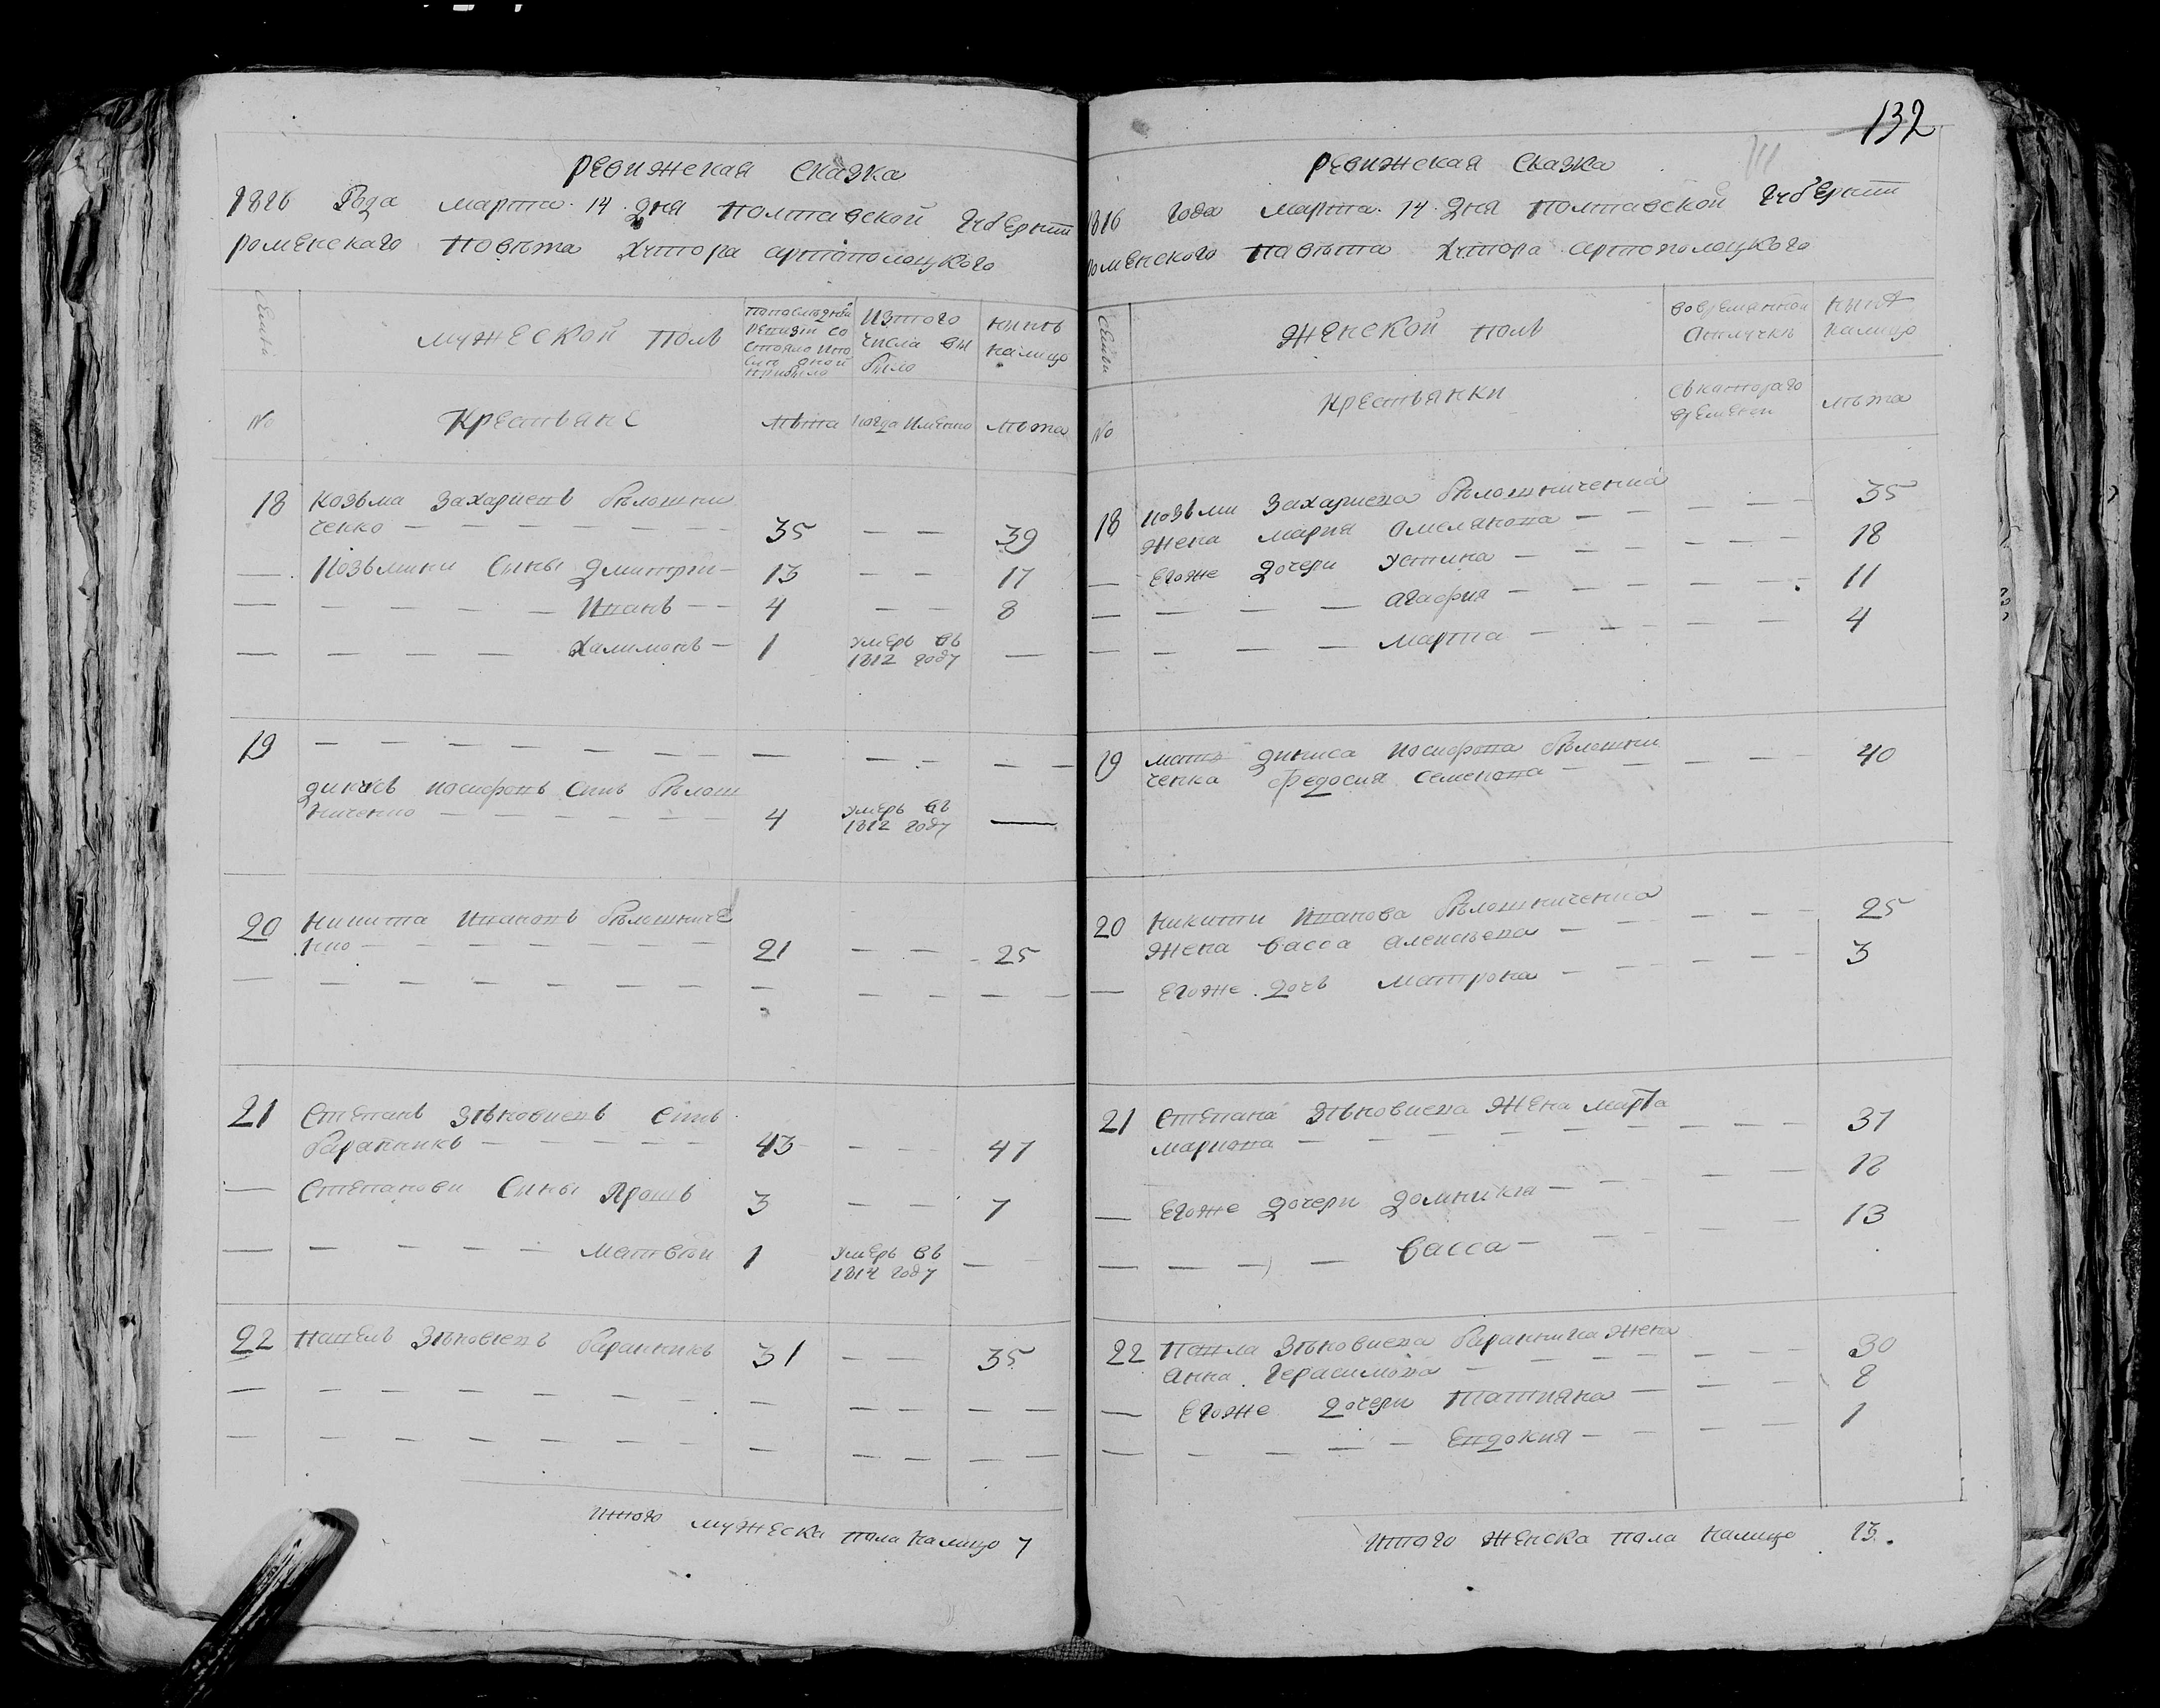 132
Ревижская Сказка
1816 Года марта 14 Дня Полтавской Губернии
роменскаго Повѣта Хутора артополоцкого
Семьи
мужеской Полъ
Попослѣдней ревизіи со стояло Ипо слѣ оной прибыло
Изтого числа вы было
нынѣ налицо
№
Крестьяне
Лѣта
когда Имянно
лѣта
18 Козьма Захариевъ Бѣлошни
ченко — 35 — — 39
— Козьмини Сины Дмитрий — 13 — — 17
— — — — Иванъ — — 4 — — 8
— — — — Халимонъ — 1 умеръ въ
1812 году —
19 — — — — — — — —
Динисъ иосифовъ Синъ Бѣлош
ниченко — 4 умеръ въ
1812 году —
20 Никита Ивановъ Бѣлошниче
нко — 21 — — 25
— — — — — — — —
21 Степанъ Зѣновиевъ Синъ
Баранникъ — 43 — — 47
— Степанови Сины Ярошъ 3 — — 7
— — — — матвѣй 1 умеръ въ
1814 году —
22 Павелъ Зѣновиевъ Баранникъ 31 — — 35
— — — — — — — —
— — — — — — — —
Итого мужеска пола налицо 7
Ревижская Сказка
1816 года марта 14 Дня Полтавской Губернии
роменского Повѣта Хутора артополоцкого
Семьи
Женской полъ
вовремянной Отлучкѣ
нынѣ налицо
№
Крестьянки
Съкотораго времени
лѣта
18 Козьми Захариева Бѣлошниченка
жена мария Омелянова — — — — 35
— Егоже Дочери Устина — — — — 18
— — — — агафия — — — — 11
— — — — марта — — — — 4
19 мать Диниса иосифова Бѣлошни
ченка Федосия Семенова — — — — 40
20 Никити Иванова Бѣлошниченка
жена васса алексѣева — — — — 25
— Егоже Дочь матрона — — — — 3
21 Степана Зѣновиева Жена марта
мариова — — — — 37
— Егоже Дочери Домникия — — — 18
— — — — васса — — — 13
22 Павла Зѣновиева Баранника Жена
анна Герасимова — — — — 30
— Егоже Дочери татияна — — — 8
— — — — Евдокия — — — 1
Итого Женска пола налицо 13.